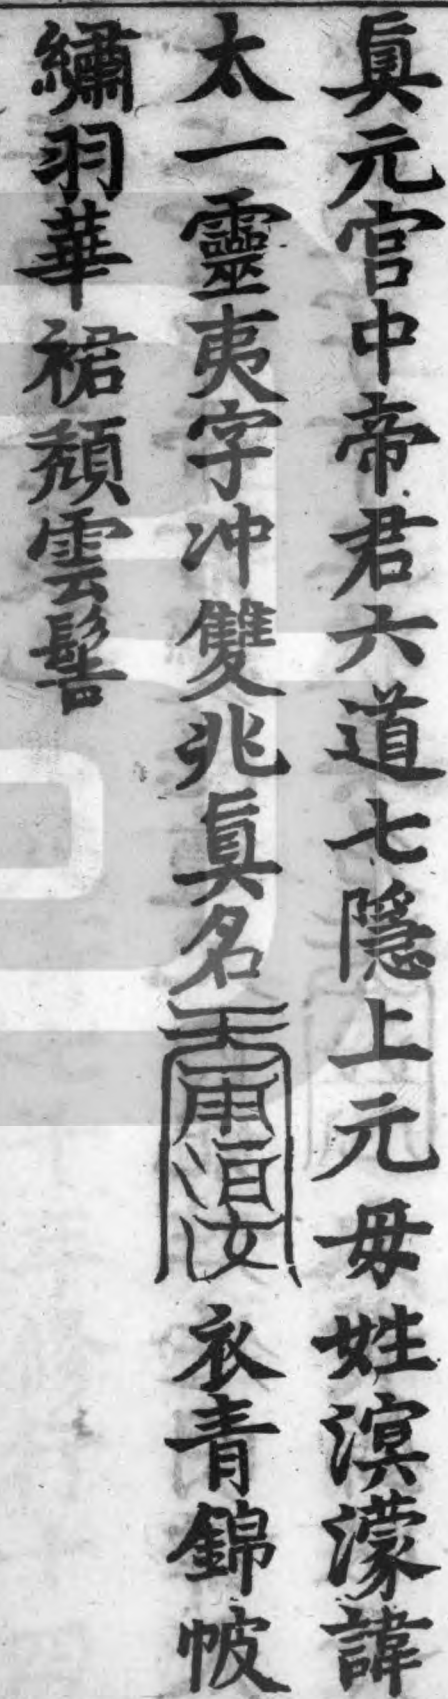 眞元宫中帝君六道七隱上元毋姓溟濛諱
太一靈夷字冲雙兆眞名衣青錦帔
繡羽華裙頹雲髻